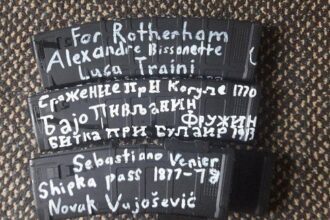 For Rotherham
Alexandre Bissonette
Luca Traini
Сражение при Кагуле 1770
Бајо Пивљанин
Фружин
битка при Булаир 1913
Sebastiano Venier
Shipka pass 1877-78
Novak Vujošević